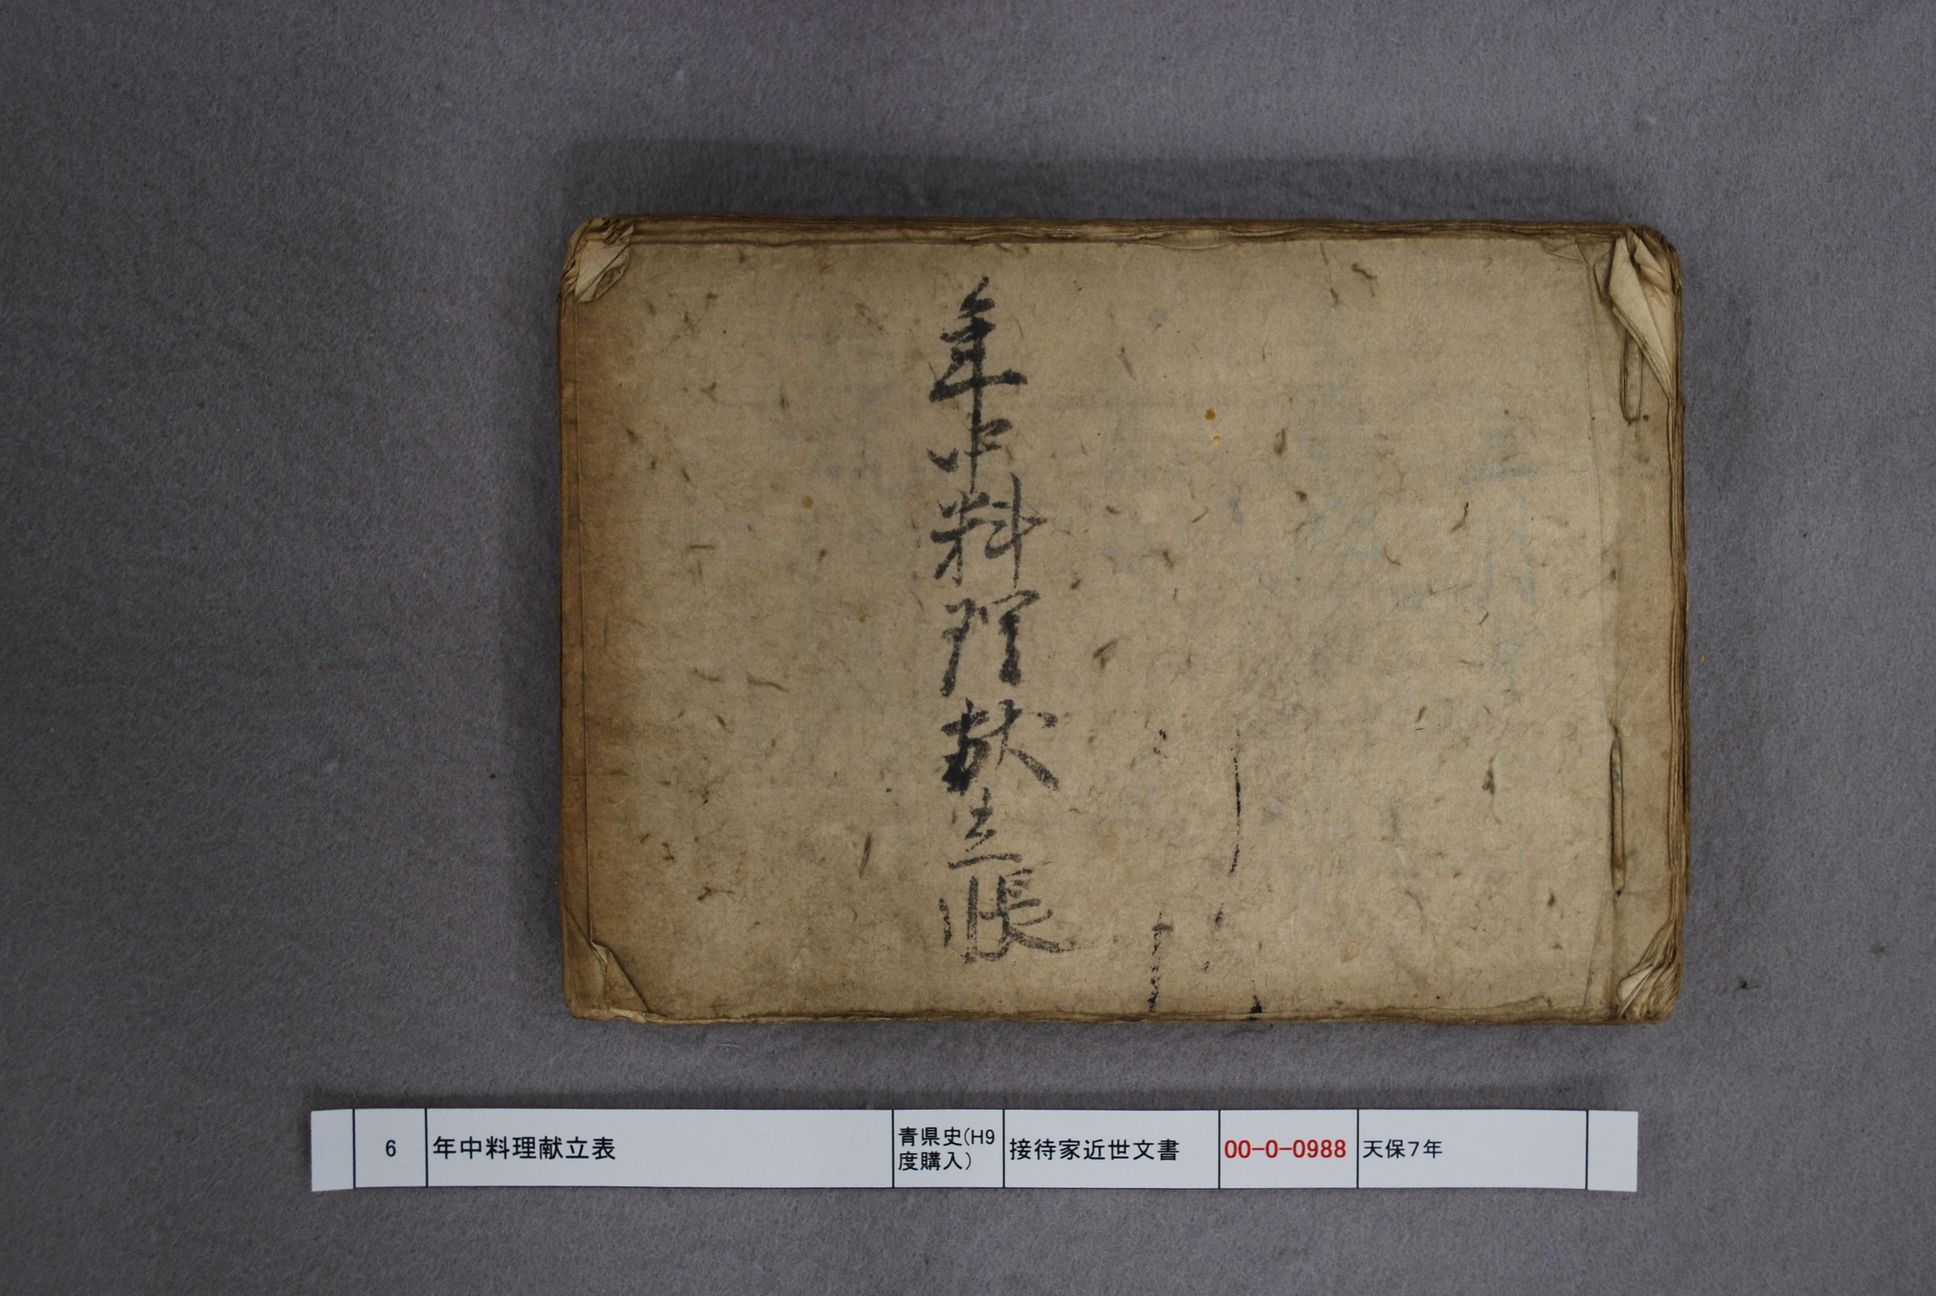 年中料理献立帳
6
年中料理献立表
青県史(H9
度購入)
接待家近世文書
00-0-0988
天保7年